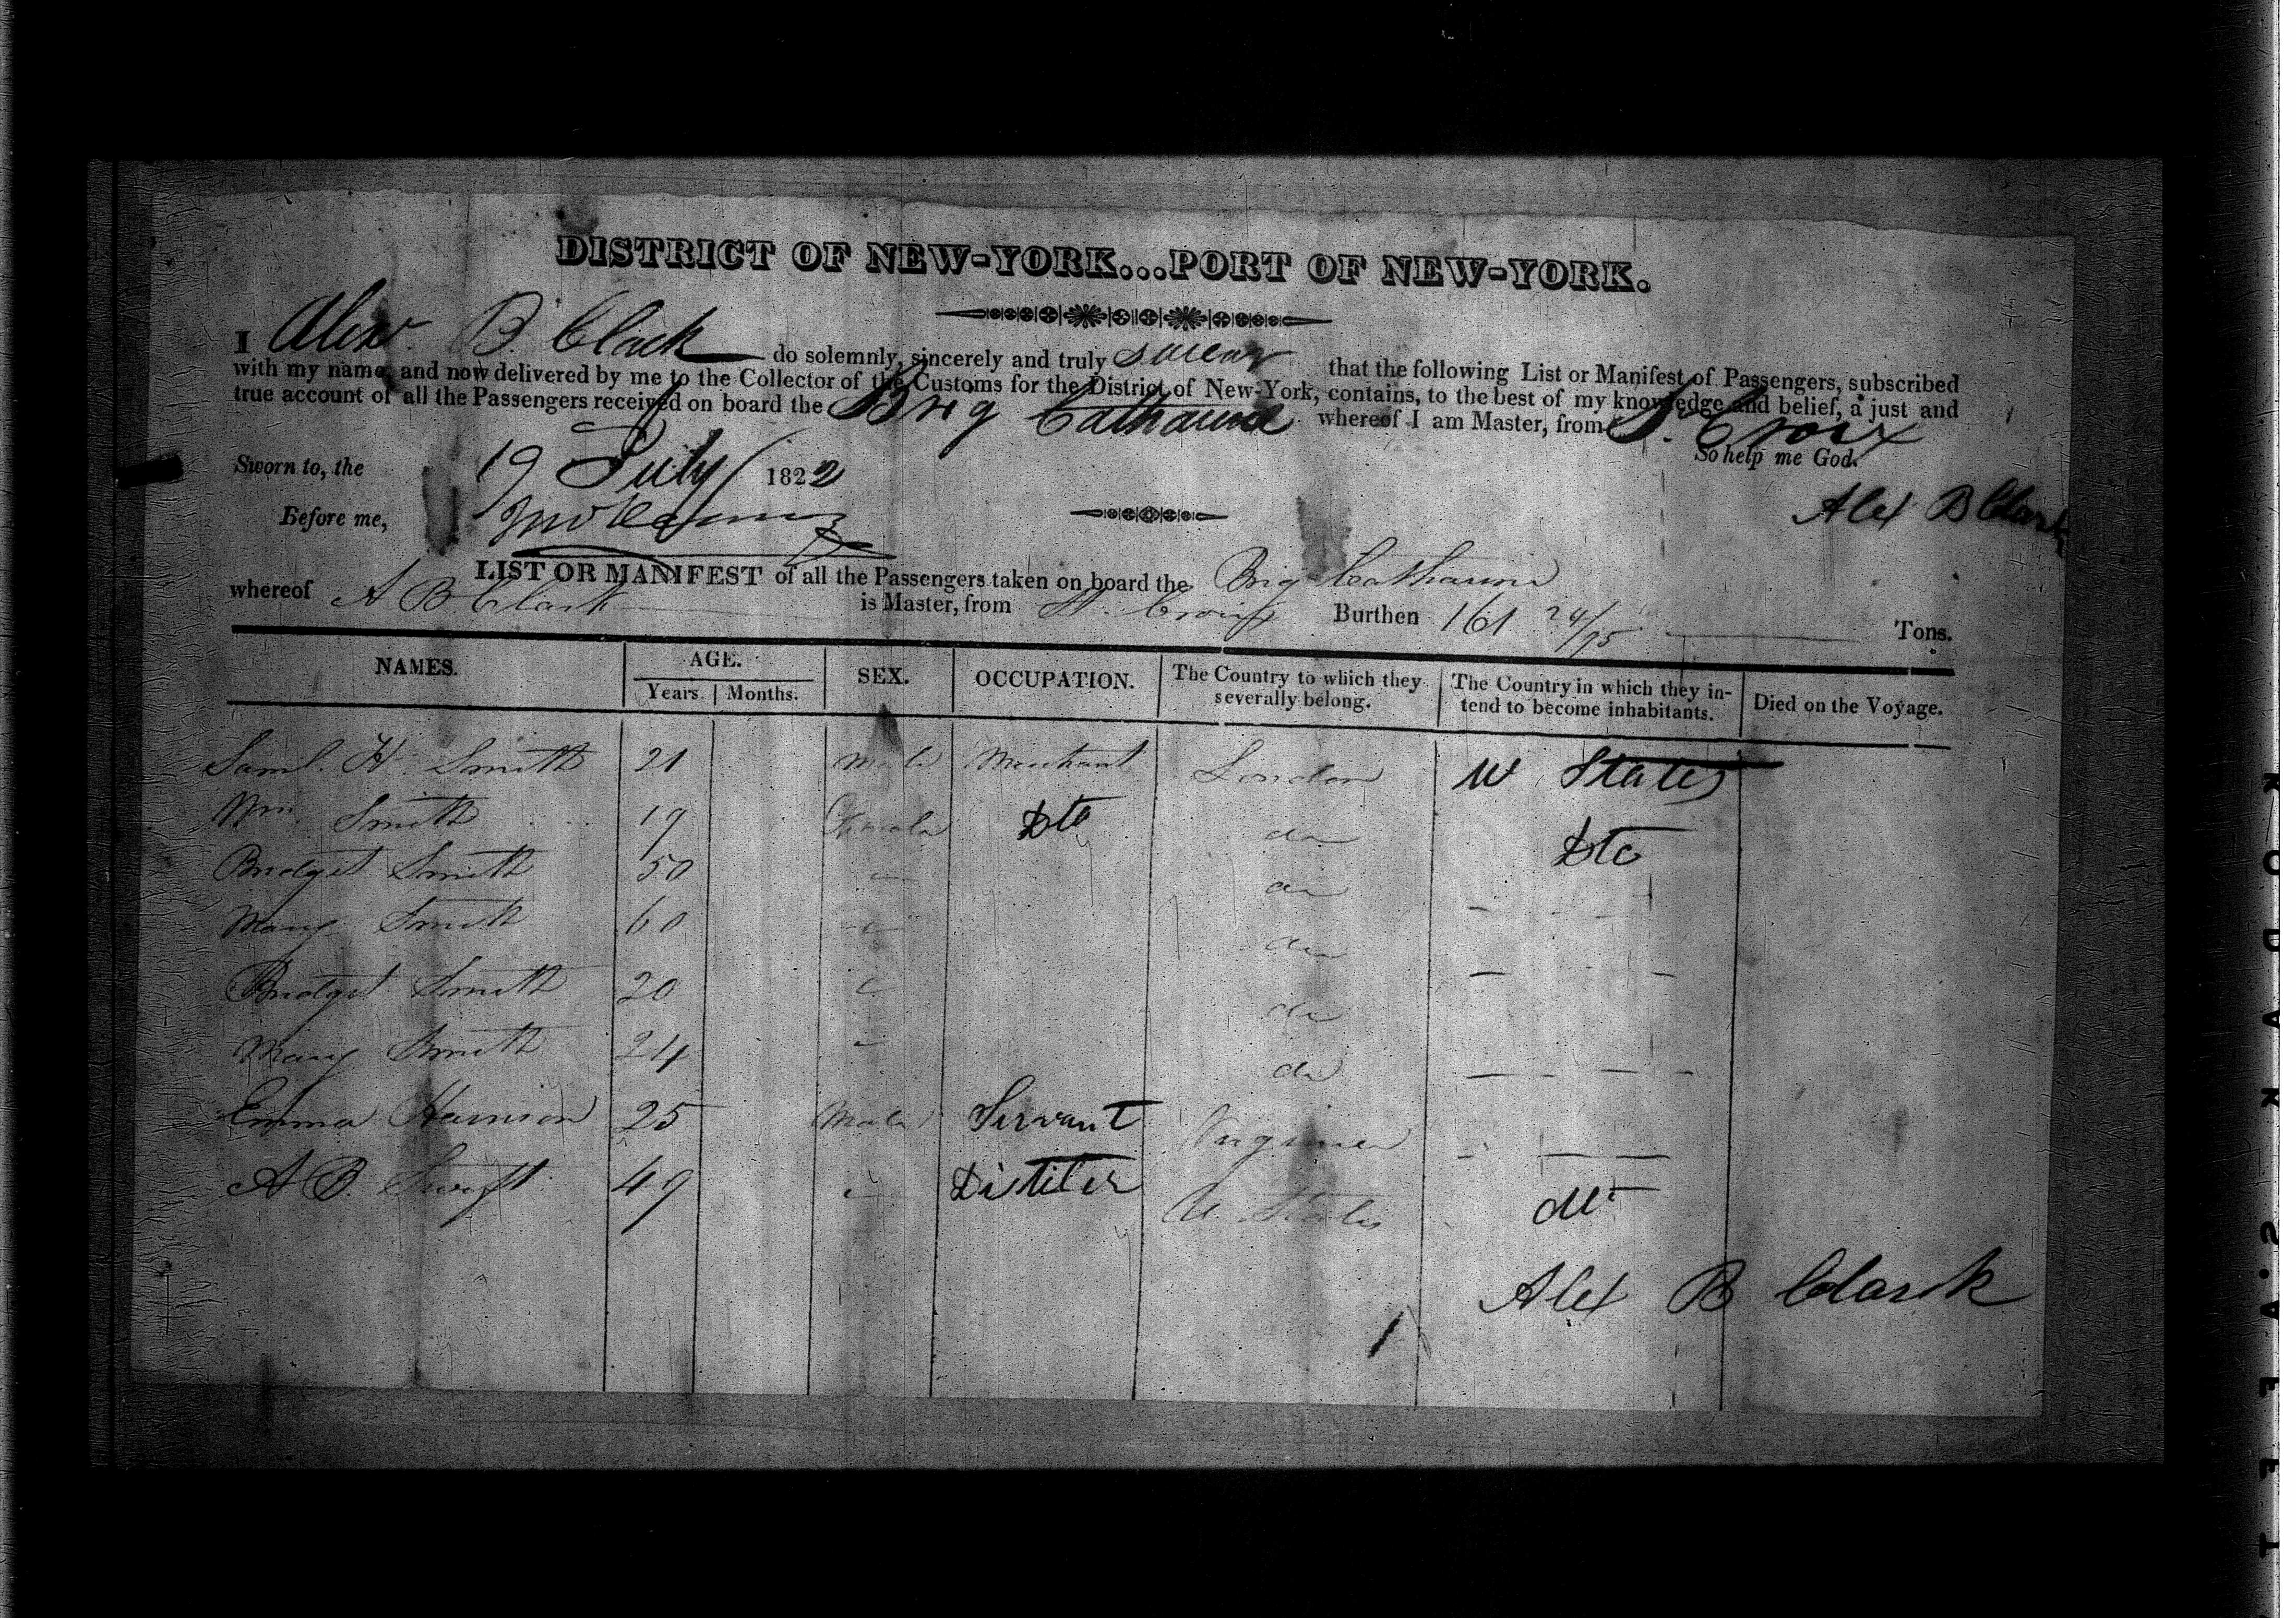 DISTRICT OF NEW-YORK...PORT OF NEW-YORK.
I Alexr. B. Clark do solemnly, sincerely and truly swear that the following List or Manifest of Passengers, subscribed
with my name, and now delivered by me to the Collector of the Customs for the District of New-York, contains, to the best of my knowledge and belief, a just and
true account of all the Passengers received on board the Brig Catharine whereof I am Master, from St. Croix
So help me God.
Sworn to, the 19 July 1822
Alex B Clark
Before me,
LIST OR MANIFEST of all the Passengers taken on board the Brig Catharine
whereof A B Clark is Master, from St. Croix Burthen 161 24/95 Tons.
NAMES. AGE. SEX. OCCUPATION. The Country to which they severally belong. The Country in which they intend to become inhabitants. Died on the Voyage.
Years. Months.
Saml. H. Smith 21 Male Merchant London U States
Smith 19 Female Dto do Dto
Bridget Smith 50 " do - - -
Mary Smith 60 " do - -
Bridget Smith 20 " do
Mary Smith 24 " do - - - -
Emma Harrison 25 Male Servant Virginia - - -
A B. Swift 49 " Distiler U. States do
Alex B Clark
1